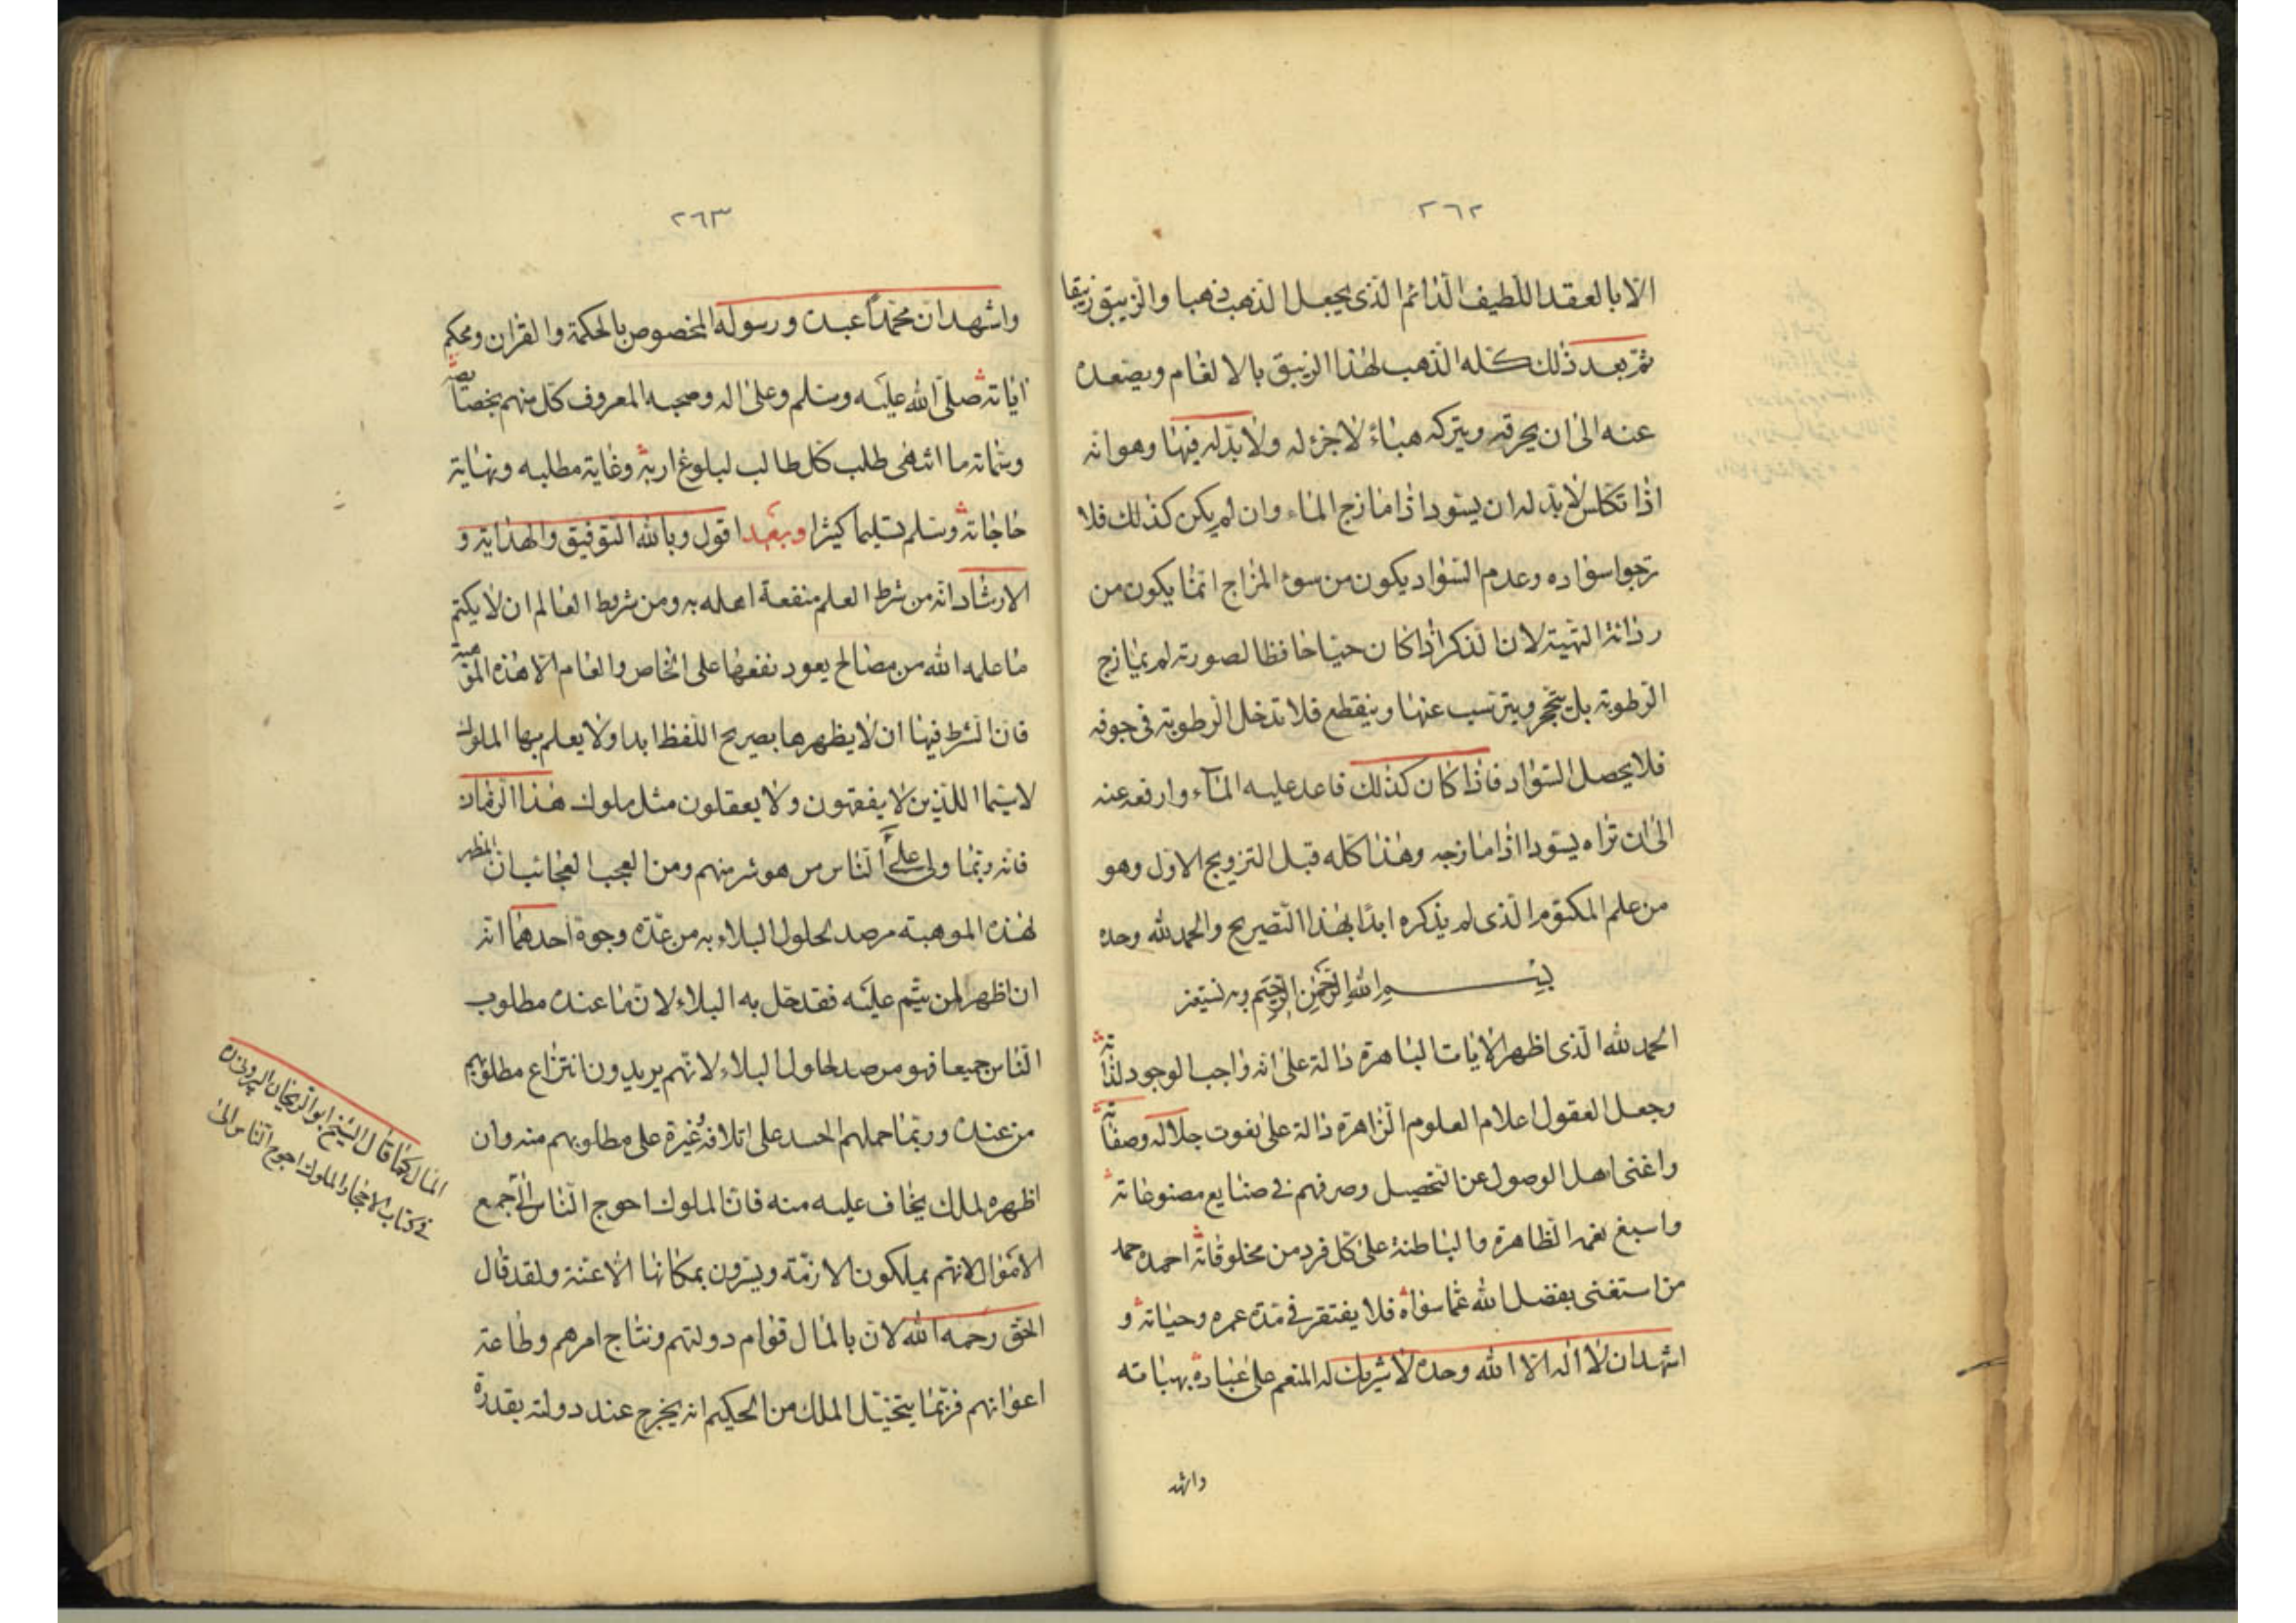 ٢٦٢
الا بالعقد اللطيف الدائم الذى يجعل الذهب ذهبا والزيبق زيبقا
ثم بعد ذلك كله الذهب لهذا الزيبق بالالغام ويصعده
عنه الى ان يحرقه ويتركه هباء لا جزء له ولا بد له فيها وهو انه
اذا تكلس لا بد له ان يسود اذا مازج الماء وان لم يكن كذلك فلا
ترجوا سواده وعدم السواد يكون من سوء المزاج انما يكون من
لان الذكر اذا كان حيا حافظا لصورته لم يمازج
الرطوبة بل يتحجر ويترسب عنها وينقطع فلا تدخل الرطوبة فى جوفه
فلا يحصل السواد فاذا كان كذلك فاعد عليه الماء وارفعه عنه
الى ان تراه يسود اذا مازجه وهذا كله قبل التزويج الاول وهو
من علم المكتوم الذى لم يذكره ابدا بهذا التصريح والحمد لله وحده
بسم الله الرحمن الرحيم وبه نستعين
الحمد لله الذى اظهر الايات الباهرة دالة على انه واجب الوجود لذاته
وجعل العقول اعلام العلوم الزاهرة دالة على نعوت جلاله وصفاته
واغنى اهل الوصول عن التحصيل وصرفهم فى صنايع مصنوعاته
واسبغ نعمه الظاهرة والباطنة على كل فرد من مخلوقاته احمده حمد
من استغنى بفضل الله عما سواه فلا يفتقر فى مدة عمره وحياته و
اشهد ان لا اله الا الله وحده لا شريك له المنعم على عباده بهباته
واشهد
٢٦٣
واشهد ان محمدا عبده ورسوله المخصوص بالحكمة والقران ومحكم
اياته صلى الله عليه وسلم وعلى اله وصحبه المعروف كل منهم بخصايصه
وسماته ما انتهى طلب كل طالب لبلوغ اربه وغاية مطلبه ونهاية
حاجاته وسلم تسليما كثيرا وبعد اقول وبالله التوفيق والهداية و
الارشاد انه من شرط العلم منفعة اهله به ومن شروط العالم ان لا يكتم
ما علمه الله من مصالح يعود نفعها على الخاص والعام الا هذه الموهبة
فان الشرط فيها ان لا يظهرها بصريح اللفظ ابدا ولا يعلم بها الملوك
لا سيما اللذين لا يفقهون ولا يعقلون مثل ملوك هذا الزمان
فانه ربما ولى على الناس من هو شر منهم ومن العجب العجائب ان المظهر
لهذه الموهبة مرصد لحلول البلاء به من عدة وجوه احدهما انه
ان اظهر لمن ينم عليه فقد حل به البلاء لان ما عنده مطلوب
الناس جميعا فهو مرصد لحلول البلاء لانهم يريدون انتزاع مطلوبهم
من عنده وربما حملهم الحسد على اتلافه غيرة على مطلوبهم منه وان
اظهره لملك يخاف عليه منه فان الملوك احوج الناس الى جمع
الاموال لانهم يملكون الازمة ويشرون بمكانها الاعنة ولقد قال
الحق رحمه الله لان بالمال قوام دولتهم ونتاج امرهم وطاعة
اعوانهم فربما يتخيل الملك من الحكيم انه يخرج عند دولته بقدرة
المال كما قال الشيخ ابو الريحان البيرونى
فى كتاب الاحجار الملوك احوج الناس الى